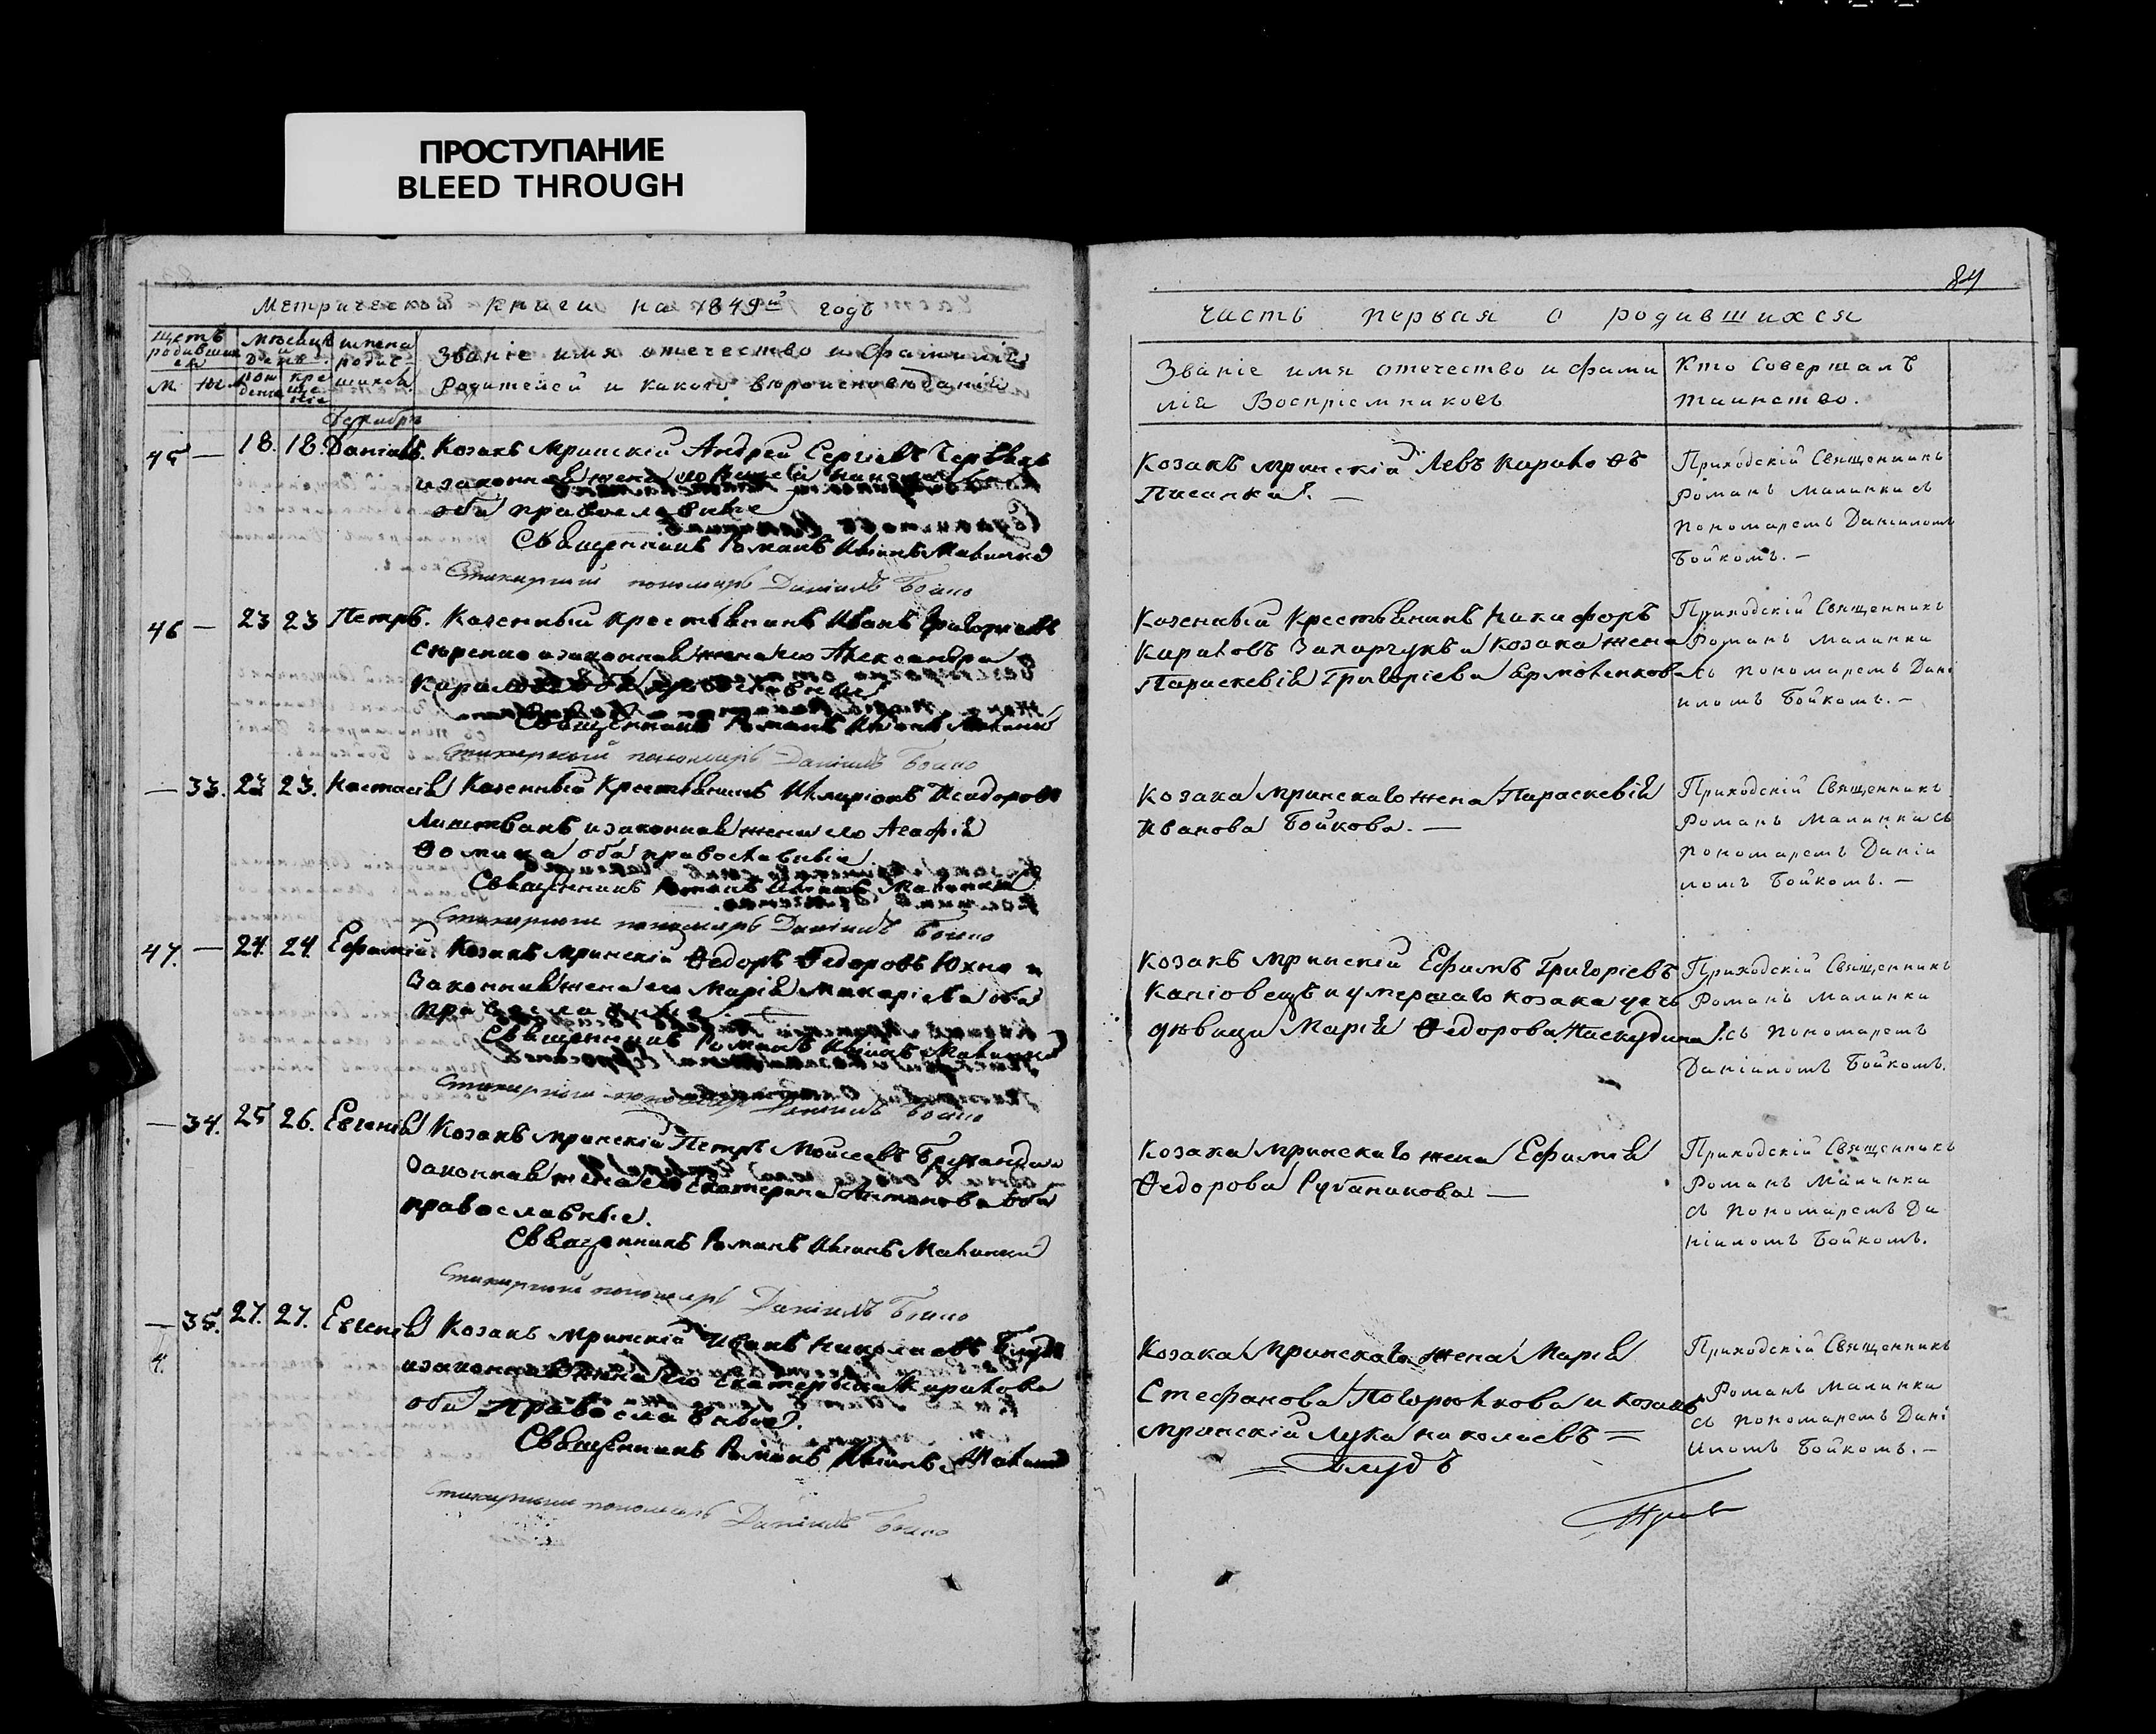 ПРОСТУПАНИЕ
BLEED THROUGH
84
Метрической книги на 1849й годъ
щетъ родившихся
М. Ж.
мѣсяцъ и день
рожденія
крещеніе
имена родившихся
Званіе имя отечество и фамилія
Родителей и какого вѣроисповѣданія
Декабрь
45 — 18. 18. Даніилъ. Козакъ Мринскій Андрей Сергіевъ
и законная жена его
оба православные
Священникъ Романъ Малинка
Стихарный пономарь Даніилъ Бойко
46 — 23 23 Петръ. Казенный крестьянинъ Иванъ Григоріевъ
и законная жена его Александра
Кирилова оба православные
Священникъ Романъ Малинка
Стихарный пономарь Даніилъ Бойко
— 33. 23 23. Настасія Казенный Крестьянинъ Иларіонъ Исидоровъ
и законная жена его Агафія
Ѳомина оба православные
Священникъ Романъ Малинка
Стихарный пономарь Даніилъ Бойко
47. — 24. 24. Ефимій. Козакъ Мринскій Ѳедоръ Ѳедоровъ Юхно и
Законная жена его Марія Макаріева оба
православные
Священникъ Романъ Малинка
Стихарный пономарь Даніилъ Бойко
— 34. 25 26. Евгенія Козакъ Мринскій Петръ Мойсеевъ
Законная жена его Екатерина Антонова оба
православные.
Священникъ Романъ Малинка
Стихарный пономарь Даніилъ Бойко
— 35. 27. 27. Евгенія Козакъ Мринскій Иванъ Николаевъ Блудъ
и законная жена его Екатерина Кирилова
оба Православные.
Священникъ Романъ Малинка
Стихарный пономарь Даніилъ Бойко
Часть первая о родившихся
Званіе имя отечество и фами
лія Воспріемниковъ
Кто Совершалъ
таинство.
Козакъ мринскій Левъ Кириловъ
Писанка. —
Приходскій Священникъ
Романъ Малинка съ
пономаремъ Даніиломъ
Бойкомъ. —
Казенный Крестьянинъ Никифоръ
Кириловъ Захарчукъ и козака жена
Параскевія Григоріева Ярмоленкова
Приходскій Священникъ
Романъ Малинка
съ пономаремъ Дані
иломъ Бойкомъ. —
Козака Мринскаго жена Параскевія
Иванова Бойкова. —
Приходскій Священникъ
Романъ Малинка съ
пономаремъ Даніи
ломъ Бойкомъ. —
Козакъ Мринскій Ефимъ Григоріевъ
Каніовецъ и умершаго козака дочь
дѣвица Марія Ѳедорова
Приходскій Священникъ
Романъ Малинка
съ пономаремъ
Даніиломъ Бойкомъ.
Козака Мринскаго жена Ефимія
Ѳедорова Рубаникова —
Приходскій Священникъ
Романъ Малинка
съ пономаремъ Да
ніиломъ Бойкомъ.
Козака Мринскаго жена Марія
Стефанова Погорѣлкова и козакъ
мринскій Лука николаевъ =
= Блудъ
Приходскій Священникъ
Романъ Малинка
съ пономаремъ Дані
иломъ Бойкомъ. —